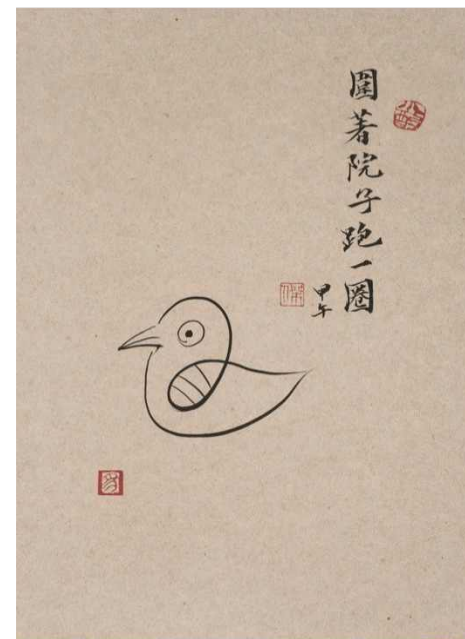 圍著院子跑一圈
甲午